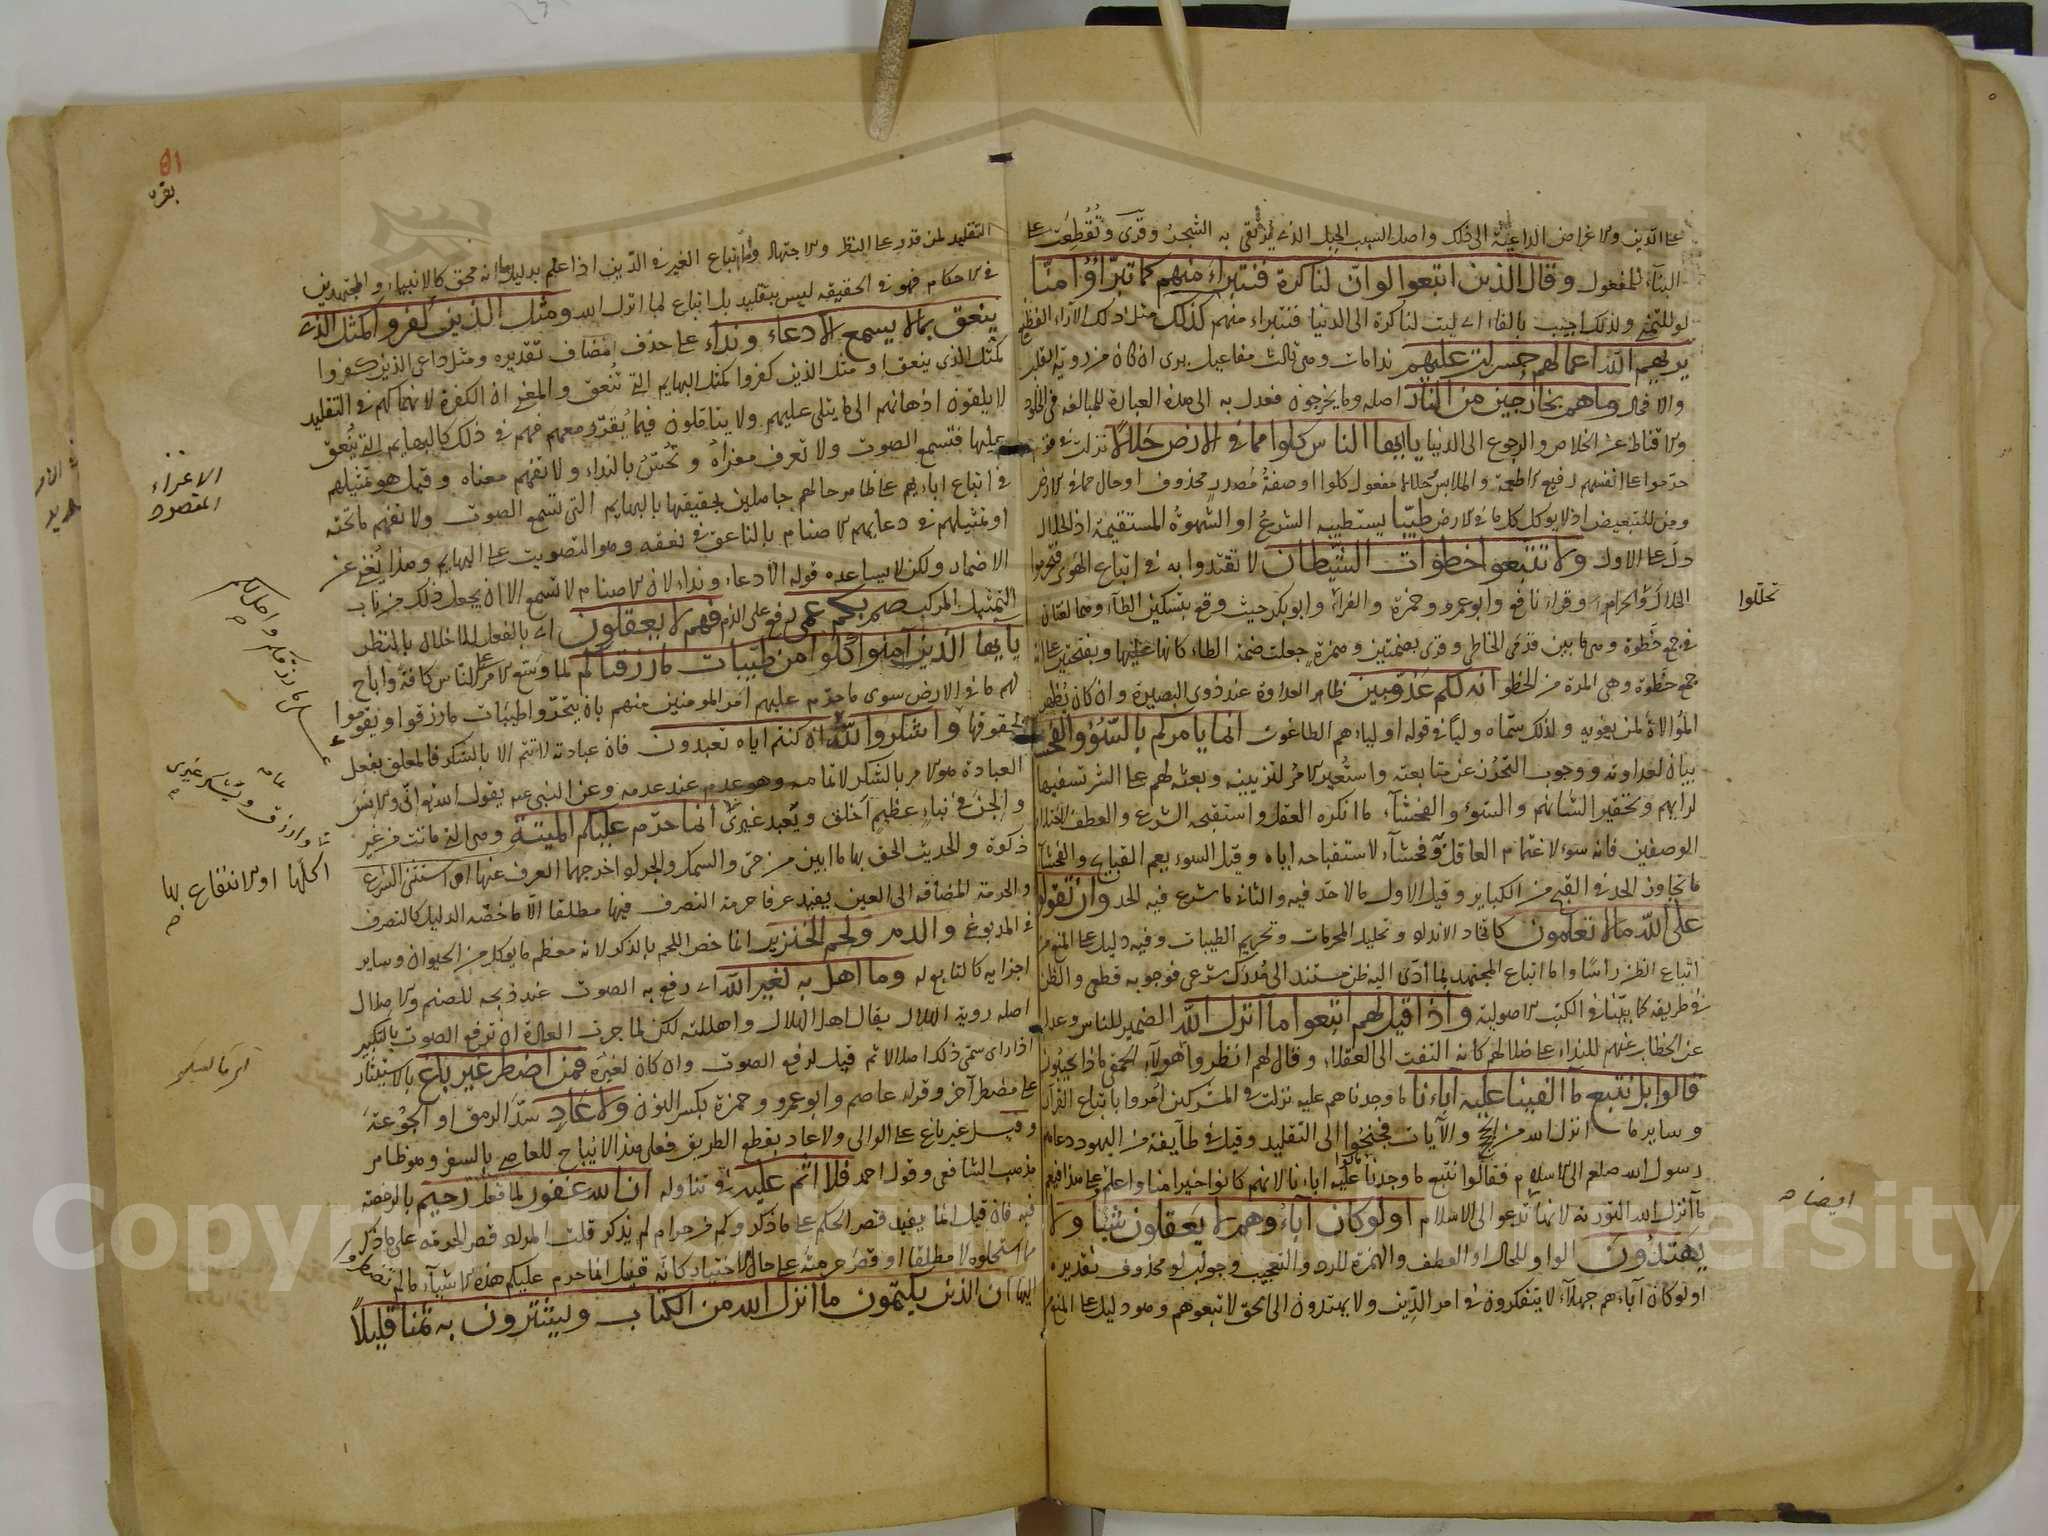 على الدين والاغراض الداعية الى ذلك واصل السبب الحبل الذي يرتقى به الشجر وقرئ وتقطعت على
البناء للمفعول وقال الذين اتبعوا لو ان لنا كرة فنتبرا منهم كما تبرؤا منا
لو للتمني ولذلك اجيب بالفاء اي ليت لنا كرة الى الدنيا فنتبراء منهم كذلك مثل ذلك الاراء الفظيع
يريهم الله اعمالهم حسرات عليهم ندامات وهي ثالث مفاعيل يرى ان كان من رؤية القلب
والا فحال وما هم بخارجين من النار اصله وما يخرجون فعدل به الى هذه العبارة للمبالغة في الخلود
والاقناط عن الخلاص والرجوع الى الدنيا يا ايها الناس كلوا مما في الارض حلالا نزلت في قوم
حرموا على انفسهم رفيع الاطعمة والملابس حلالا مفعول كلوا او صفة مصدر محذوف او حال مما في الارض
ومن للتبعيض اذ لا يوكل كل ما في الارض طيبا يستطيبه الشرع او الشهوة المستقيمة اذ الحلال
دل على الاول ولا تتبعوا خطوات الشيطان لا تقتدوا به في اتباع الهوى فتحرموا
الحلال والحرام وقراء نافع وابو عمرو وحمزة وابو بكر حيث وقع بتسكين الطاء وهما لغتان
في جمع خطوة وهي ما بين قدمي الخاطي وقرئ بضمتين وهمزة جعلت ضمة الطاء كانها عليها وبفتحتين على انه
جمع خطوة وهي المرة من الخطو انه لكم عدو مبين ظاهر العداوة عند ذوي البصيرة وان كان يظهر
الموالاة لمن يغويه ولذلك سماه وليا في قوله اولياءهم الطاغوت انما يامركم بالسوء والفحشاء
بيان لعداوته ووجوب التحرز عن متابعته واستعير الامر لتزيينه وبعثه لهم على الشر تسفيها
لرايهم وتحقيرا لشانهم والسوء والفحشاء ما انكره العقل واستقبحه الشرع والعطف لاختلاف
الوصفين فانه سوء لاغتمام العاقل وفحشاء لاستقباحه اياه وقيل السوء يعم القبايح والفحشاء
ما تجاوز الحد في القبح من الكباير وقيل الاول ما لا حد فيه والثاني ما شرع فيه الحد وان تقولوا
على الله ما لا تعلمون كاتخاذ الانداد وتحليل المحرمات وتحريم الطيبات وفيه دليل على المنع من
اتباع الظن راسا واما اتباع المجتهد لما ادى اليه ظن مستند الى مدرك شرعي فوجوبه قطعي والظن
في طريقه كما بيناه في الكتب الاصولية واذا قيل لهم اتبعوا ما انزل الله الضمير للناس وعدل
عن الخطاب عنهم للنداء على ضلالهم كانه التفت الى العقلاء وقال لهم انظروا هولاء الحمقى ماذا يجيبون
قالوا بل نتبع ما الفينا عليه آباءنا ما وجدناهم عليه نزلت في المشركين امروا باتباع القران
وساير ما انزل الله من الحجج والآيات فجنحوا الى التقليد وقيل في طايفة من اليهود دعاهم
رسول الله صلعم الى الاسلام فقالوا نتبع ما وجدنا عليه اباءنا لانهم كانوا خيرا منا واعلم وعلى هذا فيعم
ما انزل الله التورية لانها تدعو الى الاسلام اولو كان آباؤهم لا يعقلون شيئا ولا
يهتدون الواو للحال او العطف والهمزة للرد والتعجيب وجواب لو محذوف تقديره
اولو كان آباءهم جهلاء لا يتفكرون في امر الدين ولا يهتدون الى الحق لاتبعوهم وهو دليل على المنع من
تحللوا
ايضا
بقره
التقليد لمن قدر على النظر والاجتهاد واما اتباع الغير في الدين اذا علم بدليل ما انه محق كالانبياء والمجتهدين
في الاحكام فهو في الحقيقة ليس بتقليد بل اتباع لما انزل الله ومثل الذين كفروا كمثل الذي
ينعق بما لا يسمع الا دعاء ونداء على حذف مضاف تقديره ومثل داعي الذين كفروا
كمثل الذي ينعق او مثل الذين كفروا كمثل البهايم التي تنعق والمعنى ان الكفرة لانهماكهم في التقليد
لا يلقون اذهانهم الى ما يتلى عليهم ولا يتاملون فيما يقرر معهم فهم في ذلك كالبهايم التي ينعق
عليها فتسمع الصوت ولا تعرف مغزاه وتحس بالنداء ولا تفهم معناه وقيل هو تمثيلهم
في اتباع اباءهم على ظاهر حالهم جاهلين بحقيقتها بالبهايم التي تسمع الصوت ولا تفهم ما تحته
او تمثيلهم في دعايهم الاصنام بالناعق في نعقه وهو التصويت على البهايم وهذا يغني عن
الاضمار ولكن لا يساعده قوله الا دعاء ونداء لان الاصنام لا تسمع الا ان يجعل ذلك من باب
التمثيل المركب صم بكم عمي رفع على الذم فهم لا يعقلون اي بالفعل للاخلال بالنظر
يا ايها الذين آمنوا كلوا من طيبات ما رزقناكم لما وسع الامر على الناس كافة واباح
لهم ما في الارض سوى ما حرم عليهم امر المومنين منهم بان يتحروا طيبات ما رزقوا ويقوموا
بحقوقها واشكروا لله ان كنتم اياه تعبدون فان عبادته لا تتم الا بالشكر فالمعلق بفعل
العبادة هو الامر بالشكر لاتمامه وهو عدم عند عدمه وعن النبي عم يقول الله اني والانس
والجن في نباء عظيم اخلق ويعبد غيري انما حرم عليكم الميتة وهي التي ماتت من غير
ذكوة والحديث الحق بها ما ابين من حي والسمك والجراد اخرجهما العرف عنها او استثنى الشرع
والحرمة المضافة الى العين يفيد عرفا حرمة التصرف فيها مطلقا الا ما خصه الدليل كالتصرف
في المدبوغ والدم ولحم الخنزير انما خص اللحم بالذكر لانه معظم ما يوكل من الحيوان وساير
اجزايه كالتابع له وما اهل به لغير الله اي رفع به الصوت عند ذبحه للصنم والاهلال
اصله روية الهلال يقال اهل الهلال واهللته لكن لما جرت العادة ان ترفع الصوت بالتكبير
اذا راى سمي ذلك اهلالا ثم قيل لرفع الصوت وان كان لغيره فمن اضطر غير باغ بالاستيثار
على مضطر آخر وقراء عاصم وابو عمرو وحمزة بكسر النون ولا عاد سد الرمق او الجوعة
وقيل غير باغ على الوالي ولا عاد بقطع الطريق فعلى هذا لا يباح للعاصي بالسفر وهو ظاهر
مذهب الشافعي وقول احمد فلا اثم عليه في تناوله ان الله غفور لما فعل رحيم بالرخصة
فيه فان قيل انما يفيد قصر الحكم على ما ذكر وكم من حرام لم يذكر قلت المراد قصر الحرمة على ما ذكر
مما استحلوه لا مطلقا او قصر حرمته على حال الاختيار كانه قيل انما حرم عليكم هذه الاشياء ما لم تضطروا
اليها ان الذين يكتمون ما انزل الله من الكتاب ويشترون به ثمنا قليلا
الاغراء
المقصود
اكلها او الانتفاع بها
Copyright © King Saud University